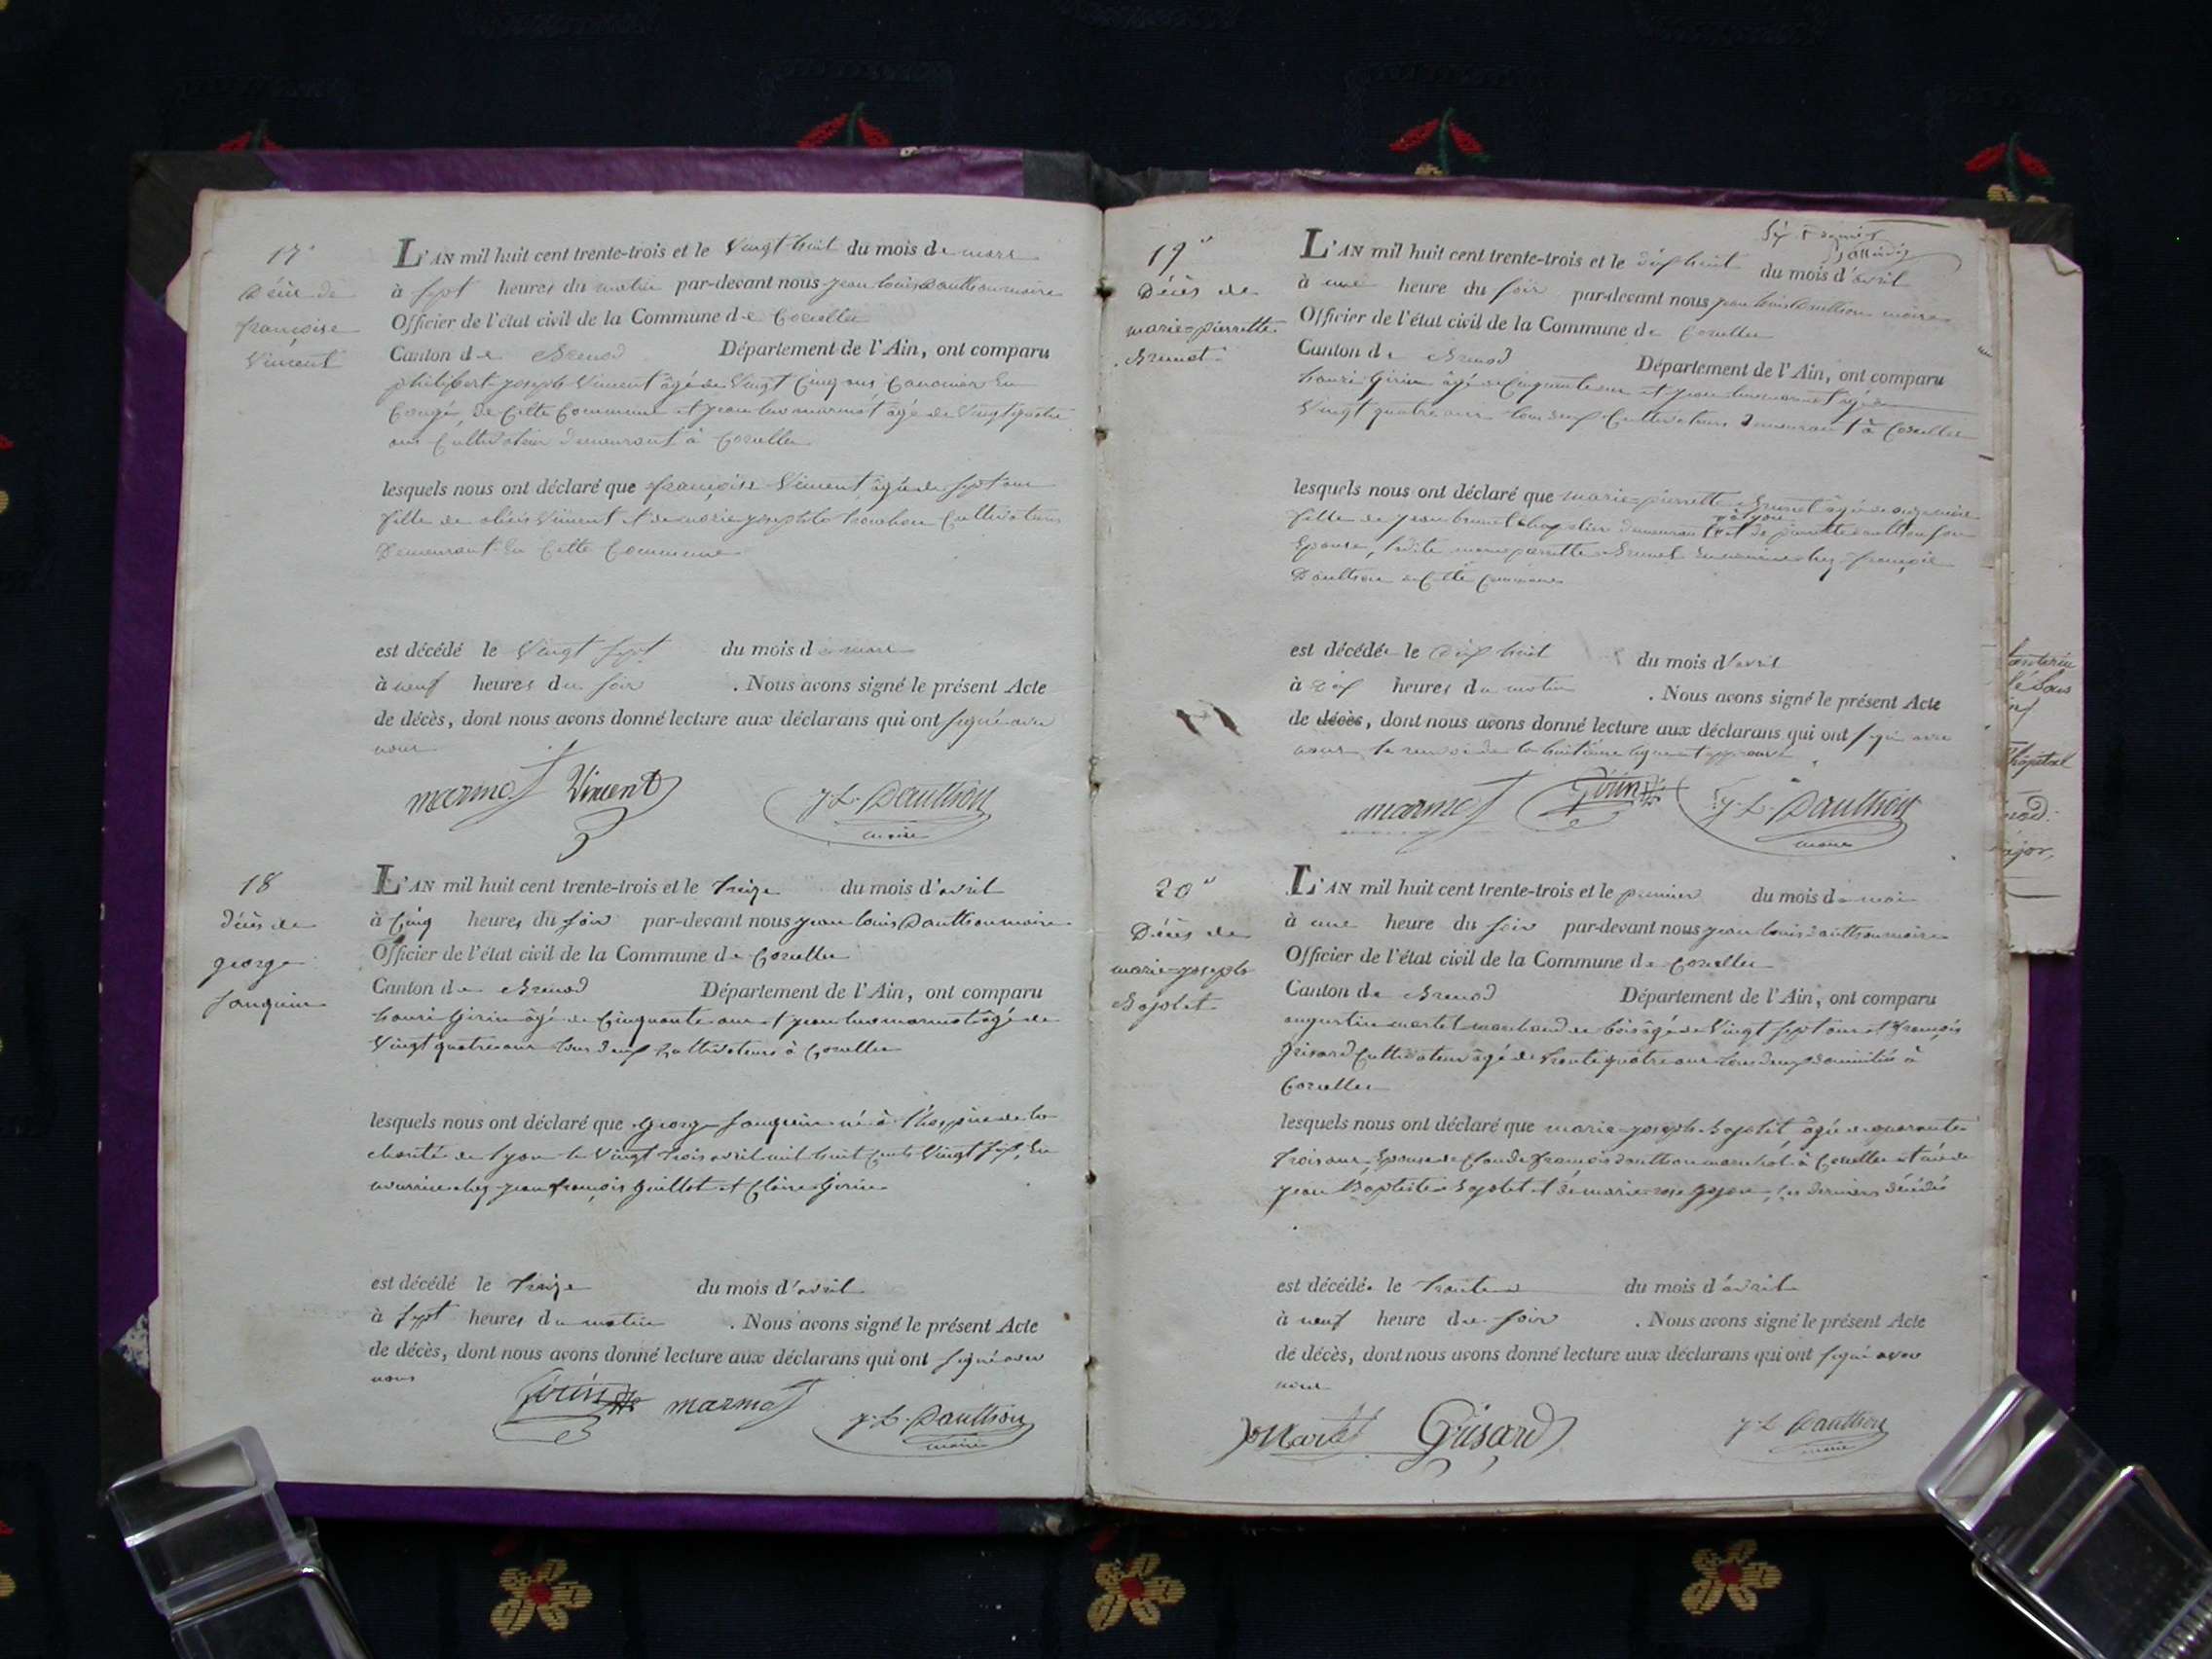 17°
Décès de
françoise
Vincent
L'AN mil huit cent trente-trois et le Vingt huit du mois de mars
à sept heures du matin par-devant nous jean louis Daulthon maire
Officier de l'état civil de la Commune de Corcelles
Canton de Brenod Département de l'Ain, ont comparu
philibert joseph Vincent âgé de Vingt Cinq ans Canonier En
Congé, de Cette Commune et jean marmet âgé de Vingt quatre
ans Cultivateur demeurant à Corcelles
lesquels nous ont déclaré que françoise Vincent âgée de sept ans
fille de Vincent et de marie josephte Cultivateurs
Demeurant En Cette Commune
est décédé le Vingt sept du mois de mars
à neuf heures du soir . Nous avons signé le présent Acte
de décès, dont nous avons donné lecture aux déclarans qui ont signé avec
nous
marmet Vincent J. L. Daulthon
maire
18
décès de
george
Janquin
L'AN mil huit cent trente-trois et le treize du mois d'avril
à Cinq heures du soir par-devant nous jean louis Daulthon maire
Officier de l'état civil de la Commune de Corcelles
Canton de Brenod Département de l'Ain, ont comparu
henri Girin âgé de Cinquante ans et jean marmet âgé de
Vingt quatre ans tous deux Cultivateurs à Corcelles
lesquels nous ont déclaré que george Janquin né à l'hospice de la
charité de lyon le Vingt trois avril mil huit Cents Vingt En
nourrice chez jean françois Guillot et Claire Girin
est décédé le treize du mois d'avril
à sept heures du matin . Nous avons signé le présent Acte
de décès, dont nous avons donné lecture aux déclarans qui ont signé avec
nous
Girin marmet J. L. Daulthon
maire
19°
Décès de
marie=pierrette
Brunet
L'AN mil huit cent trente-trois et le dix huit du mois d'avril
à une heure du soir par-devant nous jean louis Daulthon maire
Officier de l'état civil de la Commune de Corcelles
Canton de Brenod Département de l'Ain, ont comparu
henri Girin âgé de Cinquante ans et jean marmet âgé de
Vingt quatre ans tous deux Cultivateurs demeurant à Corcelles
lesquels nous ont déclaré que marie=pierrette Brunet âgée de mois
à lyon
fille de jean brunet chapelier demeurant et de pierrette son
Epouse, ladite marie pierrette Brunet En nourrice chez françois
Daulthon en Cette Commune
est décédée le dix huit du mois d'avril
à dix heures du matin . Nous avons signé le présent Acte
de décès, dont nous avons donné lecture aux déclarans qui ont signé avec
nous le renvoi de la huitième ligne est approuvé
marmet Girin J. L. Daulthon
maire
20°
Décès de
marie=joseph
Bajolet
L'AN mil huit cent trente-trois et le premier du mois de mai
à une heure du soir par-devant nous jean louis Daulthon maire
Officier de l'état civil de la Commune de Corcelles
Canton de Brenod Département de l'Ain, ont comparu
augustin martel marchand de bois âgé de Vingt sept ans et françois
Grisard Cultivateur âgé de trente quatre ans tous deux domiciliés à
Corcelles
lesquels nous ont déclaré que marie=joseph Bajolet âgée de quarante
trois ans, Epouse de Claude françois Daulthon maréchal à Corcelles et née de
jean Baptiste Bajolet et de marie=rose Goyon, les derniers décédés
est décédée le trente du mois d'avril
à neuf heure du soir . Nous avons signé le présent Acte
de décès, dont nous avons donné lecture aux déclarans qui ont signé avec
nous
Martel Grisard J. L. Daulthon
maire
l'hôpital